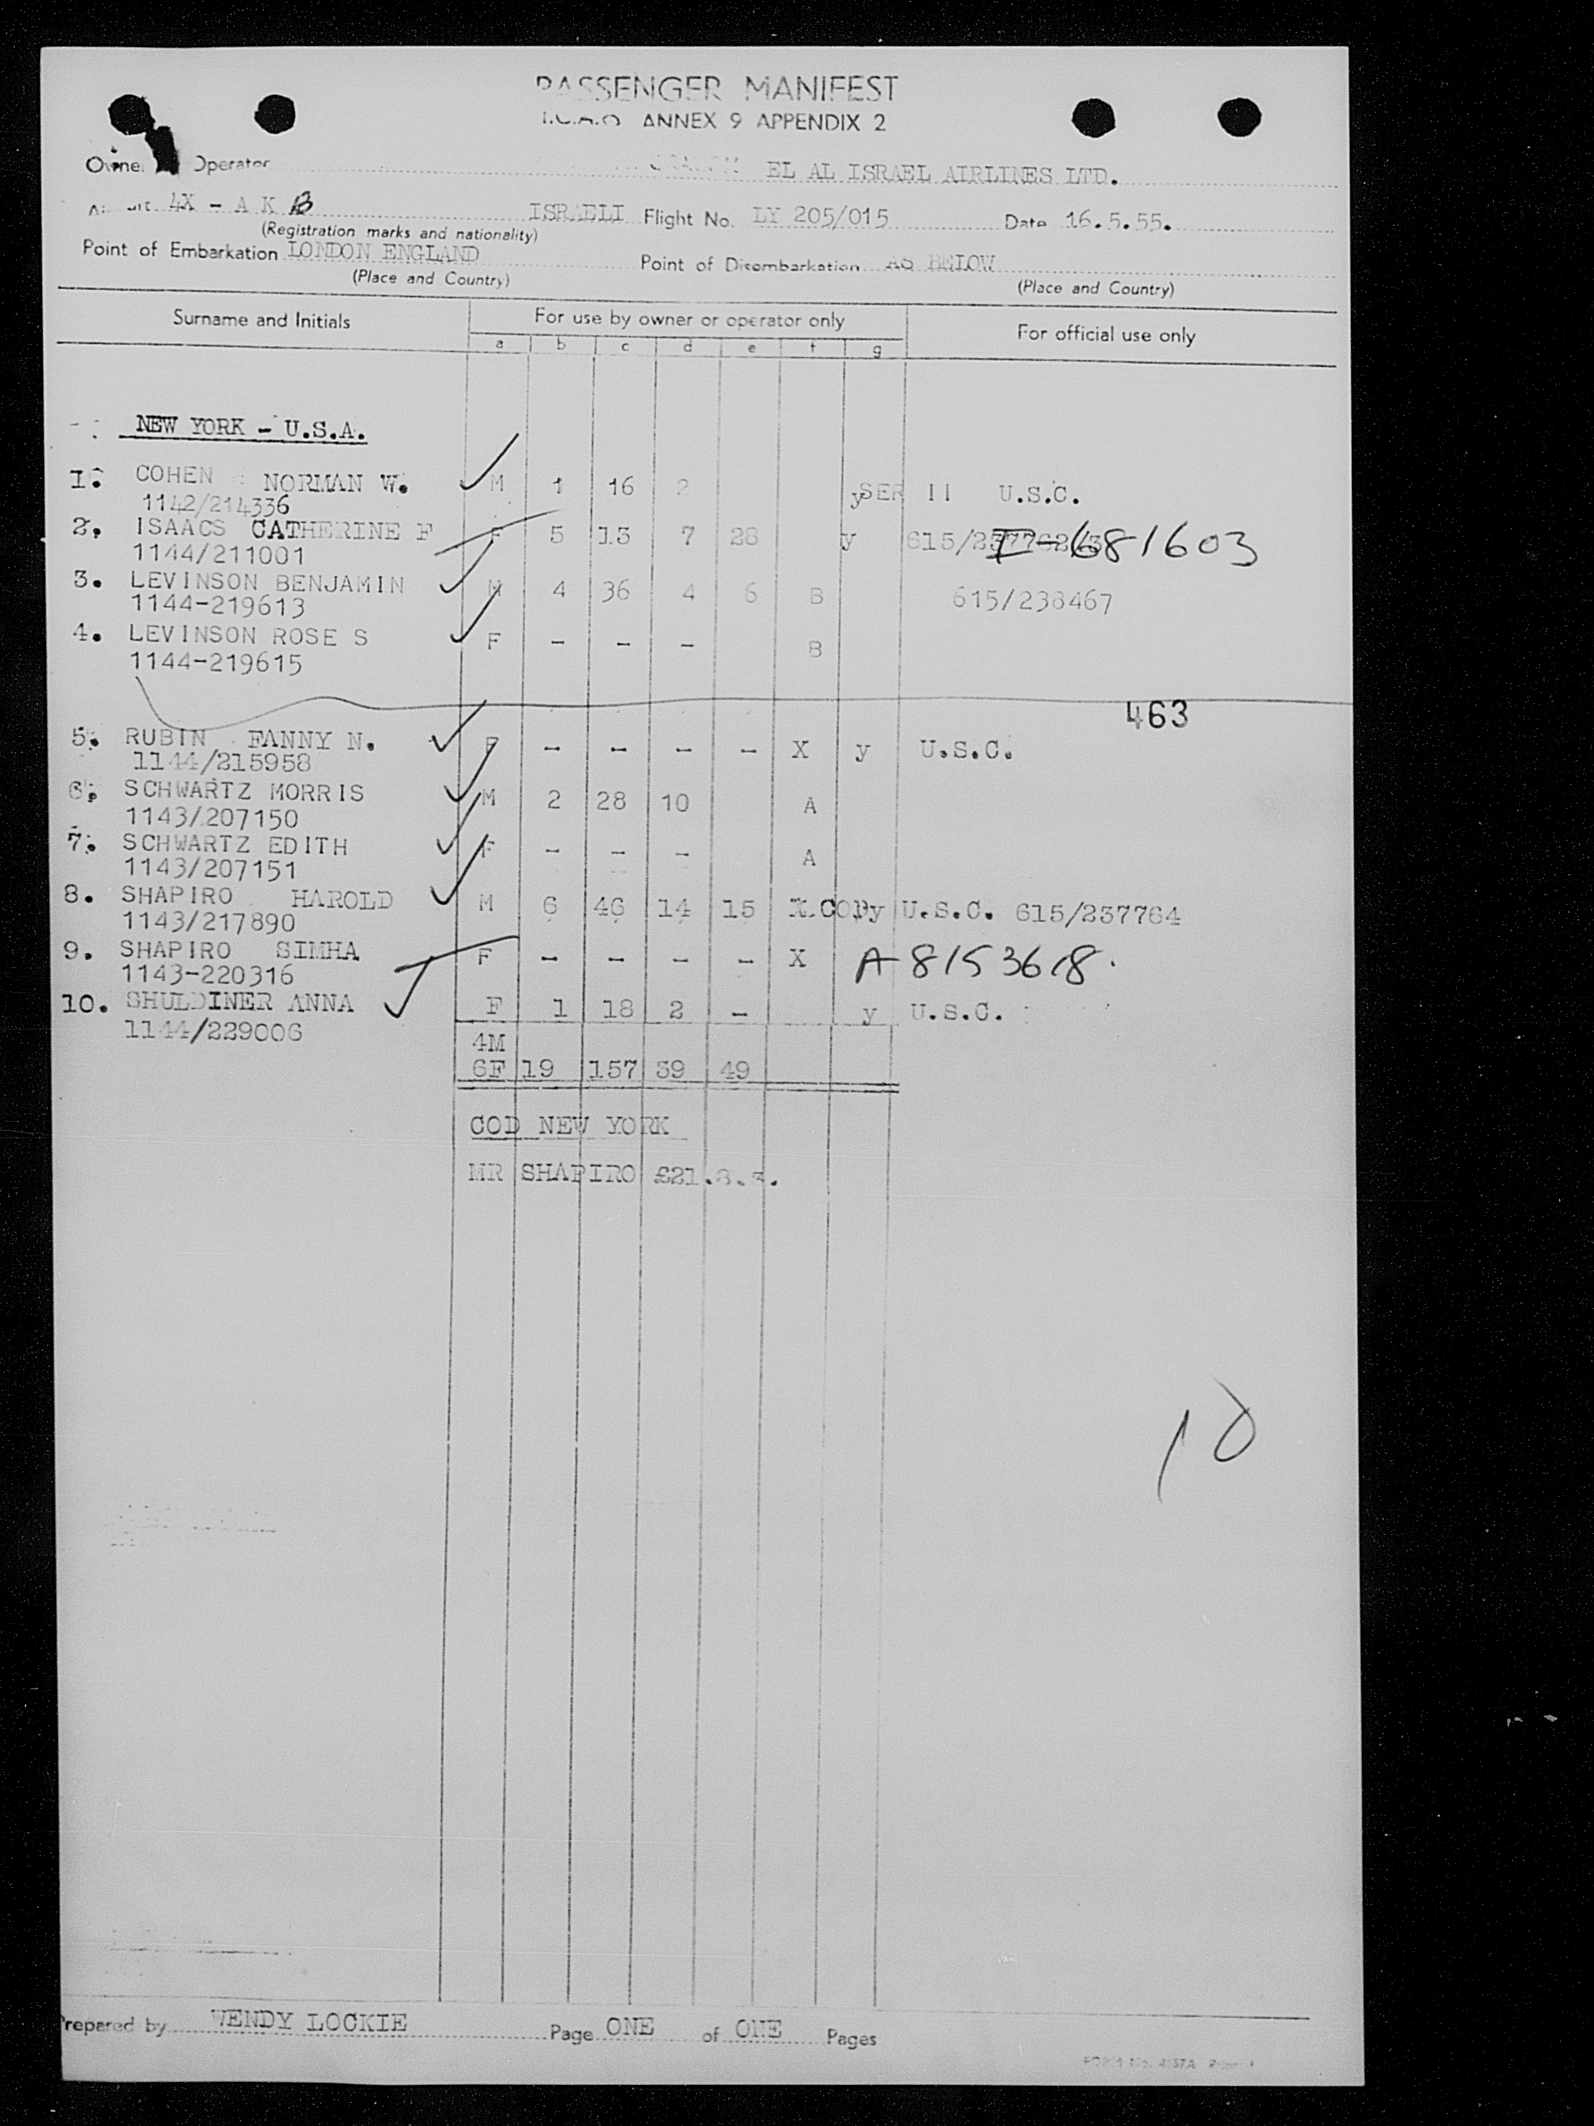 PASSENGER MANIFEST
I.C.A.O ANNEX 9 APPENDIX 2
Owner Operator EL AL ISRAEL AIRLINES LTD.
4X - A K B ISRAELI Flight No. LY 205/015 Date 16.5.55.
(Registration marks and nationality)
Point of Embarkation LONDON ENGLAND Point of Disembarkation AS BELOW
(Place and Country) (Place and Country)
Surname and Initials For use by owner or operator only For official use only
a b c d e f g
NEW YORK - U.S.A.
1. COHEN NORMAN W. M 1 16 2 y SER 11 U.S.C.
1142/214336
2. ISAACS CATHERINE F F 5 13 7 28 y 615/ 681603
1144/211001
3. LEVINSON BENJAMIN M 4 36 4 6 B 615/238467
1144-219613
4. LEVINSON ROSE S F - - - B
1144-219615
463
5. RUBIN FANNY N. F - - - - X y U.S.C.
1144/215958
6. SCHWARTZ MORRIS M 2 28 10 A
1143/207150
7. SCHWARTZ EDITH F - - - A
1143/207151
8. SHAPIRO HAROLD M 6 46 14 15 X COPy U.S.C. 615/237764
1143/217890
9. SHAPIRO SIMHA F - - - - X A 8153618.
1143-220316
10. SHULDINER ANNA F 1 18 2 - y U.S.C.
1144/229006
4M
6F 19 157 39 49
COD NEW YORK
MR SHAPIRO £21.
10
Prepared by WENDY LOCKIE Page ONE of ONE Pages